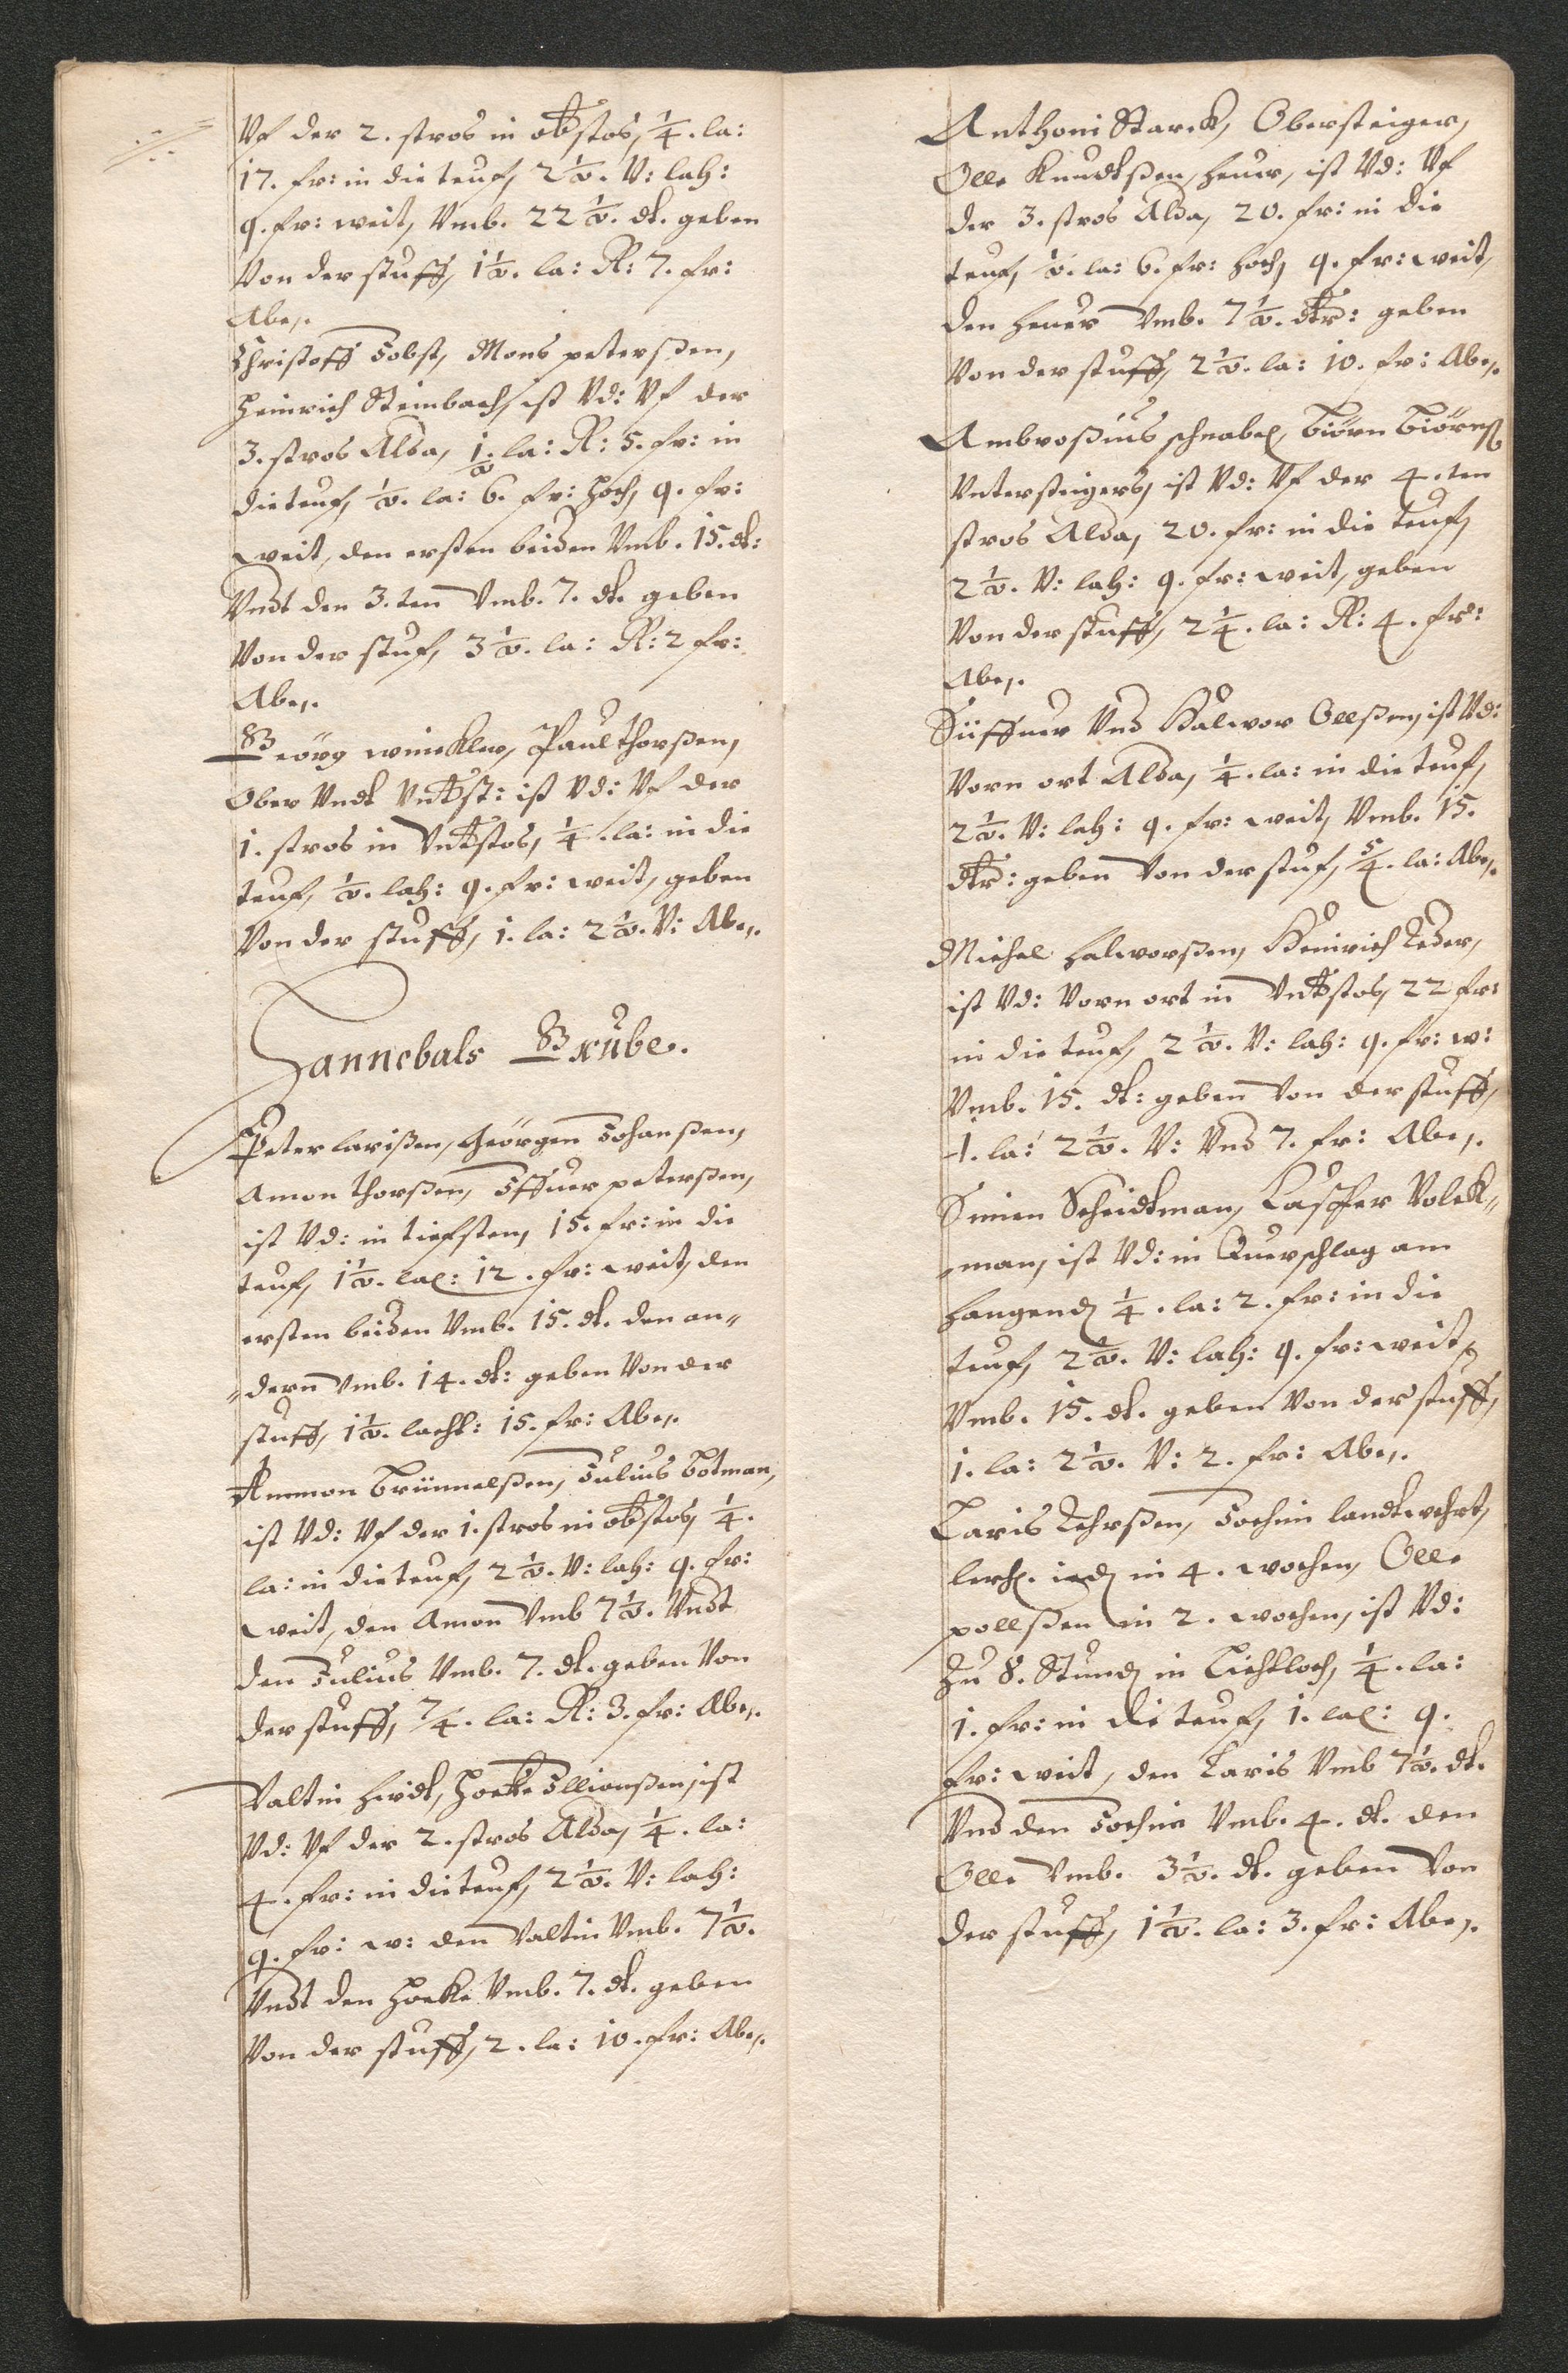 Vf der 2. stros in obstos, 1/4. la:
17. fr: in die teuf, 2 1/2. V: lah:
9. fr: weit, Vmb. 22 1/2. dl. geben
Von der stuff, 1 1/2. la: R: 7. fr:
Abe,.
Christoff Jobst, Mons peterßen,
Heinrich Steinbach, ist Vd: Vf der
3. stros Alda, 1/2. la: R: 5. fr: in
die teuf, 1/2. la: 6. fr: hoch, 9. fr:
weit, den ersten beiden Vmb. 15. dl:
Vndt den 3. ten Vmb. 7. dl. geben
Von der stuf, 3 1/2. la: R: 2 fr:
Abe,.
Geörg winckler, Paul thorßen,
Ober Vndt Vnterst: ist Vd: Vf der
1. stros in Vnterstos, 1/4. la: in die
teuf, 1/2. lah: 9. fr: weit, geben
Von der stuff, 1. la: 2 1/2. V: Abe,.
Hannebals Grube.
Peter larißen, Geörgen Johanßen,
Amon thorßen, Iffuer peterßen,
ist Vd: in tiefsten, 15. fr: in die
teuf, 1 1/2. lal: 12. fr: weit, den
ersten beiden Vmb. 15. dl. den an„
„dern Vmb. 14. dl: geben Von der
stuff, 1 1/2. lacht: 15. fr: Abe,.
Ammon Brünnelßen, Julius Botman,
ist Vd: Vf der 1. stros in obstos, 1/4.
la: in die teuf, 2 1/2. V: lah: 9. fr:
weit, den Amon Vmb 7 1/2. Vndt
den Julius Vmb. 7. dl. geben Von
der stuff, 7/4. la: R: 3. fr: Abe,.
Valtin hirdt, Hocke Illianßen, ist
Vd: Vf der 2. stros Alda, 1/4. la:
4. fr: in die teuf, 2 1/2. V: lah:
9. fr: w: den Valtin Vmb. 7 1/2.
Vndt den Hocke Vmb. 7. dl. geben
Von der stuff, 2. la: 10. fr: Abe,.
Anthoni Starck, Obersteiger,
Olle Knudtßen, heuer, ist Vd: Vf
der 3. stros Alda, 20. fr: in die
teuf, 1/2. la: 6. fr: hoch, 9. fr: weit,
den heuer Vmb. 7 1/2. dlr: geben
Von der stuff, 2 1/2. la: 10. fr: Abe,.
Ambroßius schnabel, Biörn Biörnß
Vntersteigers, ist Vd: Vf der 4. ten
stros Alda, 20. fr: in die teuf,
2 1/2. V: lah: 9. fr: weit, geben
Von der stuff, 2 1/4. la: R: 4. fr:
Abe,.
Siffuer Vnd Halwor Ollßen, ist Vd:
Vorn ort Alda, 1/4. la: in die teuf,
2 1/2. V: lah: 9. fr: weit, Vmb. 15.
dlr: geben Von der stuf, 5/4. la: Abe,.
Michel halworßen, Heinrich Reder,
ist Vd: Vorn ort in Vnterstos, 22 fr:
in die teuf, 2 1/2. V: lah: 9. fr: w:
Vmb. 15. dl: geben Von der stuff,
1. la: 2 1/2. V: Vnd 7. fr: Abe,.
Simen Scheidtman, Casper Volck„
„man, ist Vd: in Querschlag am
hangend 1/4. la: 2. fr: in die
teuf, 2 1/2. V: lah: 9. fr: weit,
Vmb. 15. dl. geben Von der stuff,
1. la: 2 1/2. V: 2. fr: Abe,.
Laris Lehrßen, Jochim landtwehrt,
in 4. wochen, Olle
pollßen in 2. wochen, ist Vd:
Zu 8. Stund in Lichtloch, 1/4. la:
1. fr: in die teuf, 1. lal: 9.
fr: weit, den Laris Vmb 7 1/2. dl.
Vnd den Jochim Vmb. 4. dl. den
Olle Vmb. 3 1/2. dl. geben Von
der stuff, 1 1/2. la: 3. fr: Abe,.